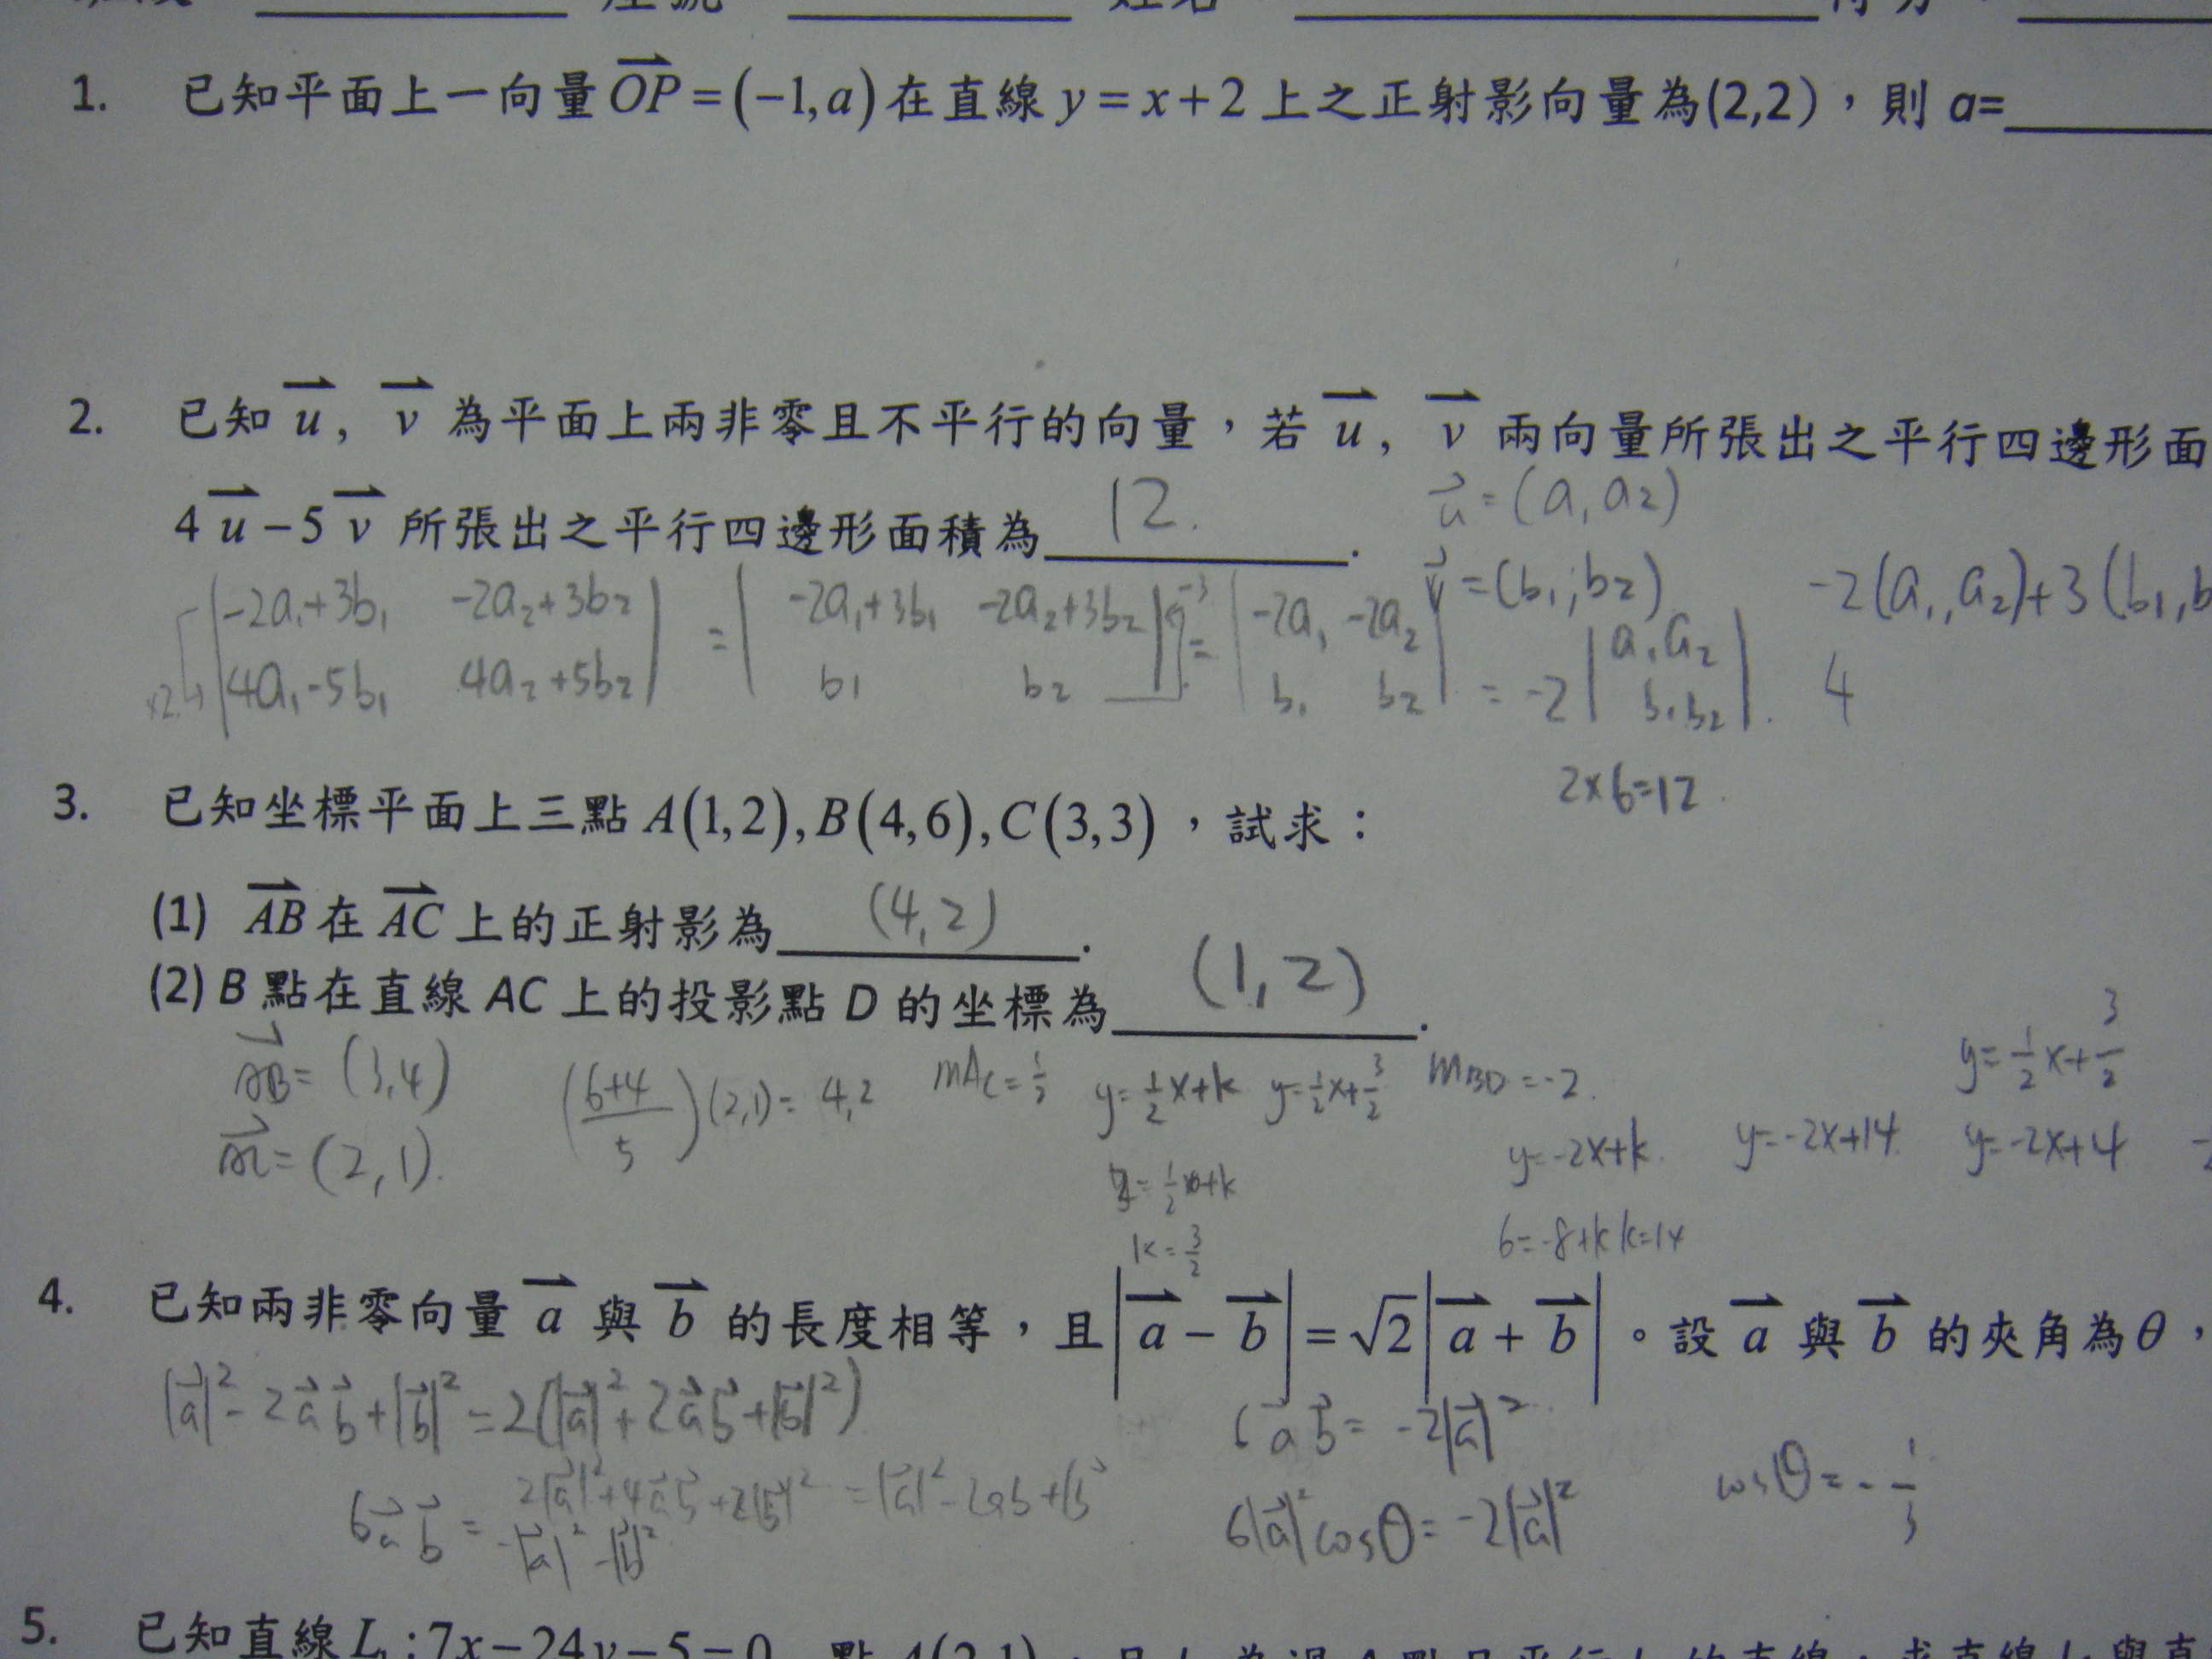 1. 已知平面上一向量 OP = (−1, a) 在直線 y = x + 2 上之正射影向量為(2,2)，則 a=
2. 已知 u, v 為平面上兩非零且不平行的向量，若 u, v 兩向量所張出之平行四邊形面
4u − 5v 所張出之平行四邊形面積為 12.
u = (a, a2)
v = (b1, b2)
-2(a1, a2)+3(b1, b
|-2a1+3b1 -2a2+3b2| = |-2a1+3b1 -2a2+3b2| = |-2a1 -2a2| = -2 |a1 a2|
×2 |4a1-5b1 4a2+5b2| |b1 b2| |b1 b2| |b1 b2| 4
2×6=12
3. 已知坐標平面上三點 A(1,2), B(4,6), C(3,3)，試求：
(1) AB 在 AC 上的正射影為 (4,2).
(2) B 點在直線 AC 上的投影點 D 的坐標為 (1,2).
AB = (3,4) (6+4/5)(2,1) = 4,2 mAC = 1/2 y = 1/2x+k y = 1/2x+3/2 mBD = -2. y = 1/2x+3/2
AC = (2,1). y = -2x+k. y = -2x+14. y = -2x+4
k = 3/2 6 = -8+k k=14
4. 已知兩非零向量 a 與 b 的長度相等，且 |a − b| = √2|a + b|。設 a 與 b 的夾角為θ，
|a|² - 2ab + |b|² = 2(|a|² + 2ab + |b|²) 6ab = -2|a|²
2|a|²+4ab+2|b|² = |a|²-2ab+|b
6ab = -|a|²-|b|² 6|a|²cosθ = -2|a|² cosθ = -1/3
5. 已知直線 L : 7x − 24y − 5 = 0